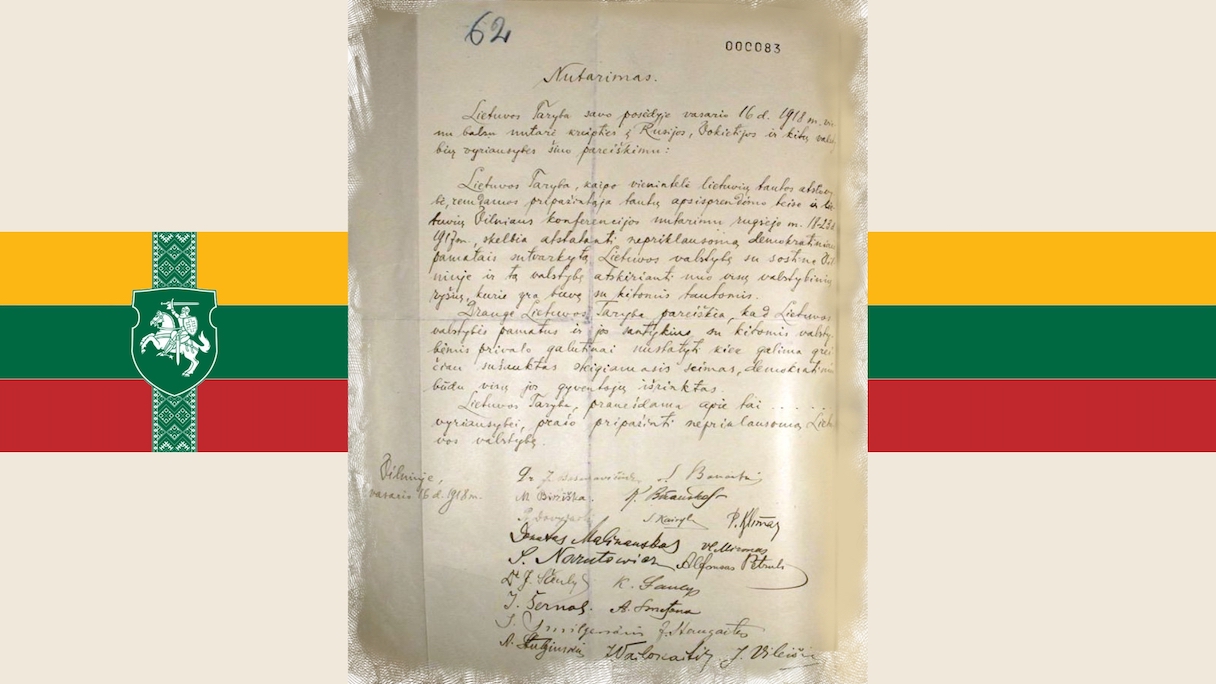 62
000083
Nutarimas.
Lietuvos Taryba savo posėdyje vasario 16 d. 1918 m. vie
nu balsu nutarė kreiptis į Rusijos, Vokietijos ir kitų valsty
bių vyriausybes šiuo pareiškimu:
Lietuvos Taryba, kaipo vienintelė lietuvių tautos atstovy
bė, remdamos pripažintąja tautų apsisprendimo teise ir lie
tuvių Vilniaus konferencijos nutarimu rugsėjo m. 18-23 d.
1917 m., skelbia atstatanti nepriklausomą demokratiniais
pamatais sutvarkytą Lietuvos valstybę su sostine Vil
niuje ir tą valstybę atskirianti nuo visų valstybinių
ryšių, kurie yra buvę su kitomis tautomis.
Drauge Lietuvos Taryba pareiškia, kad Lietuvos
valstybės pamatus ir jos santykius su kitomis valsty
bėmis privalo galutinai nustatyti kiek galima grei
čiau sušauktas steigiamasis seimas, demokratiniu
būdu visų jos gyventojų išrinktas.
Lietuvos Taryba, pranešdama apie tai . . . . . .
vyriausybei, prašo pripažinti nepriklausomą Lietu
vos valstybę.
Vilniuje,
vasario 16 d. 1918 m.
Dr. J. Basanavičius S. Banaitis
M. Biržiška K. Bizauskas
P. Dovydaitis S. Kairys P. Klimas
Donatas Malinauskas Vl. Mironas
S. Narutowicz Alfonsas Petrulis
Dr. J. Šaulys K. Šaulys
J. Šernas. A. Smetona
J. Smilgevičius J. Staugaitis
A. Stulginskis J. Vileišis